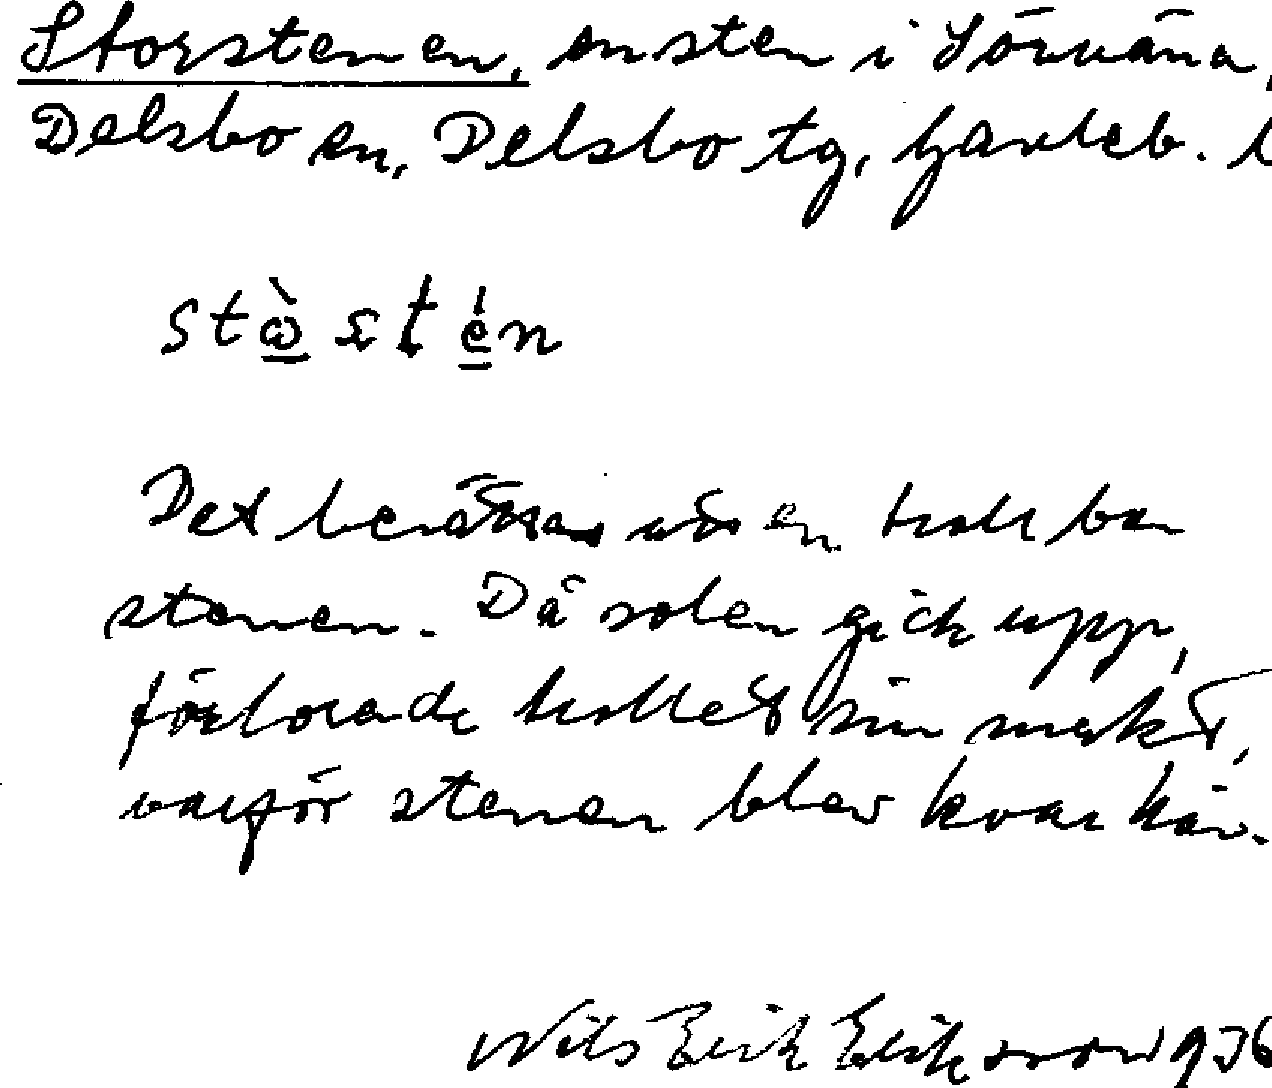 Storstenen, en sten i Sörväna,
Delsbo sn, Delsbo tg, Gävleb. l
stò̱stén
Det berättas att en troll bar
stenen. Då solen gick upp,
förlorade trollet sin makt,
varför stenen blev kvar här.
Nils Erik Eriksson 1936